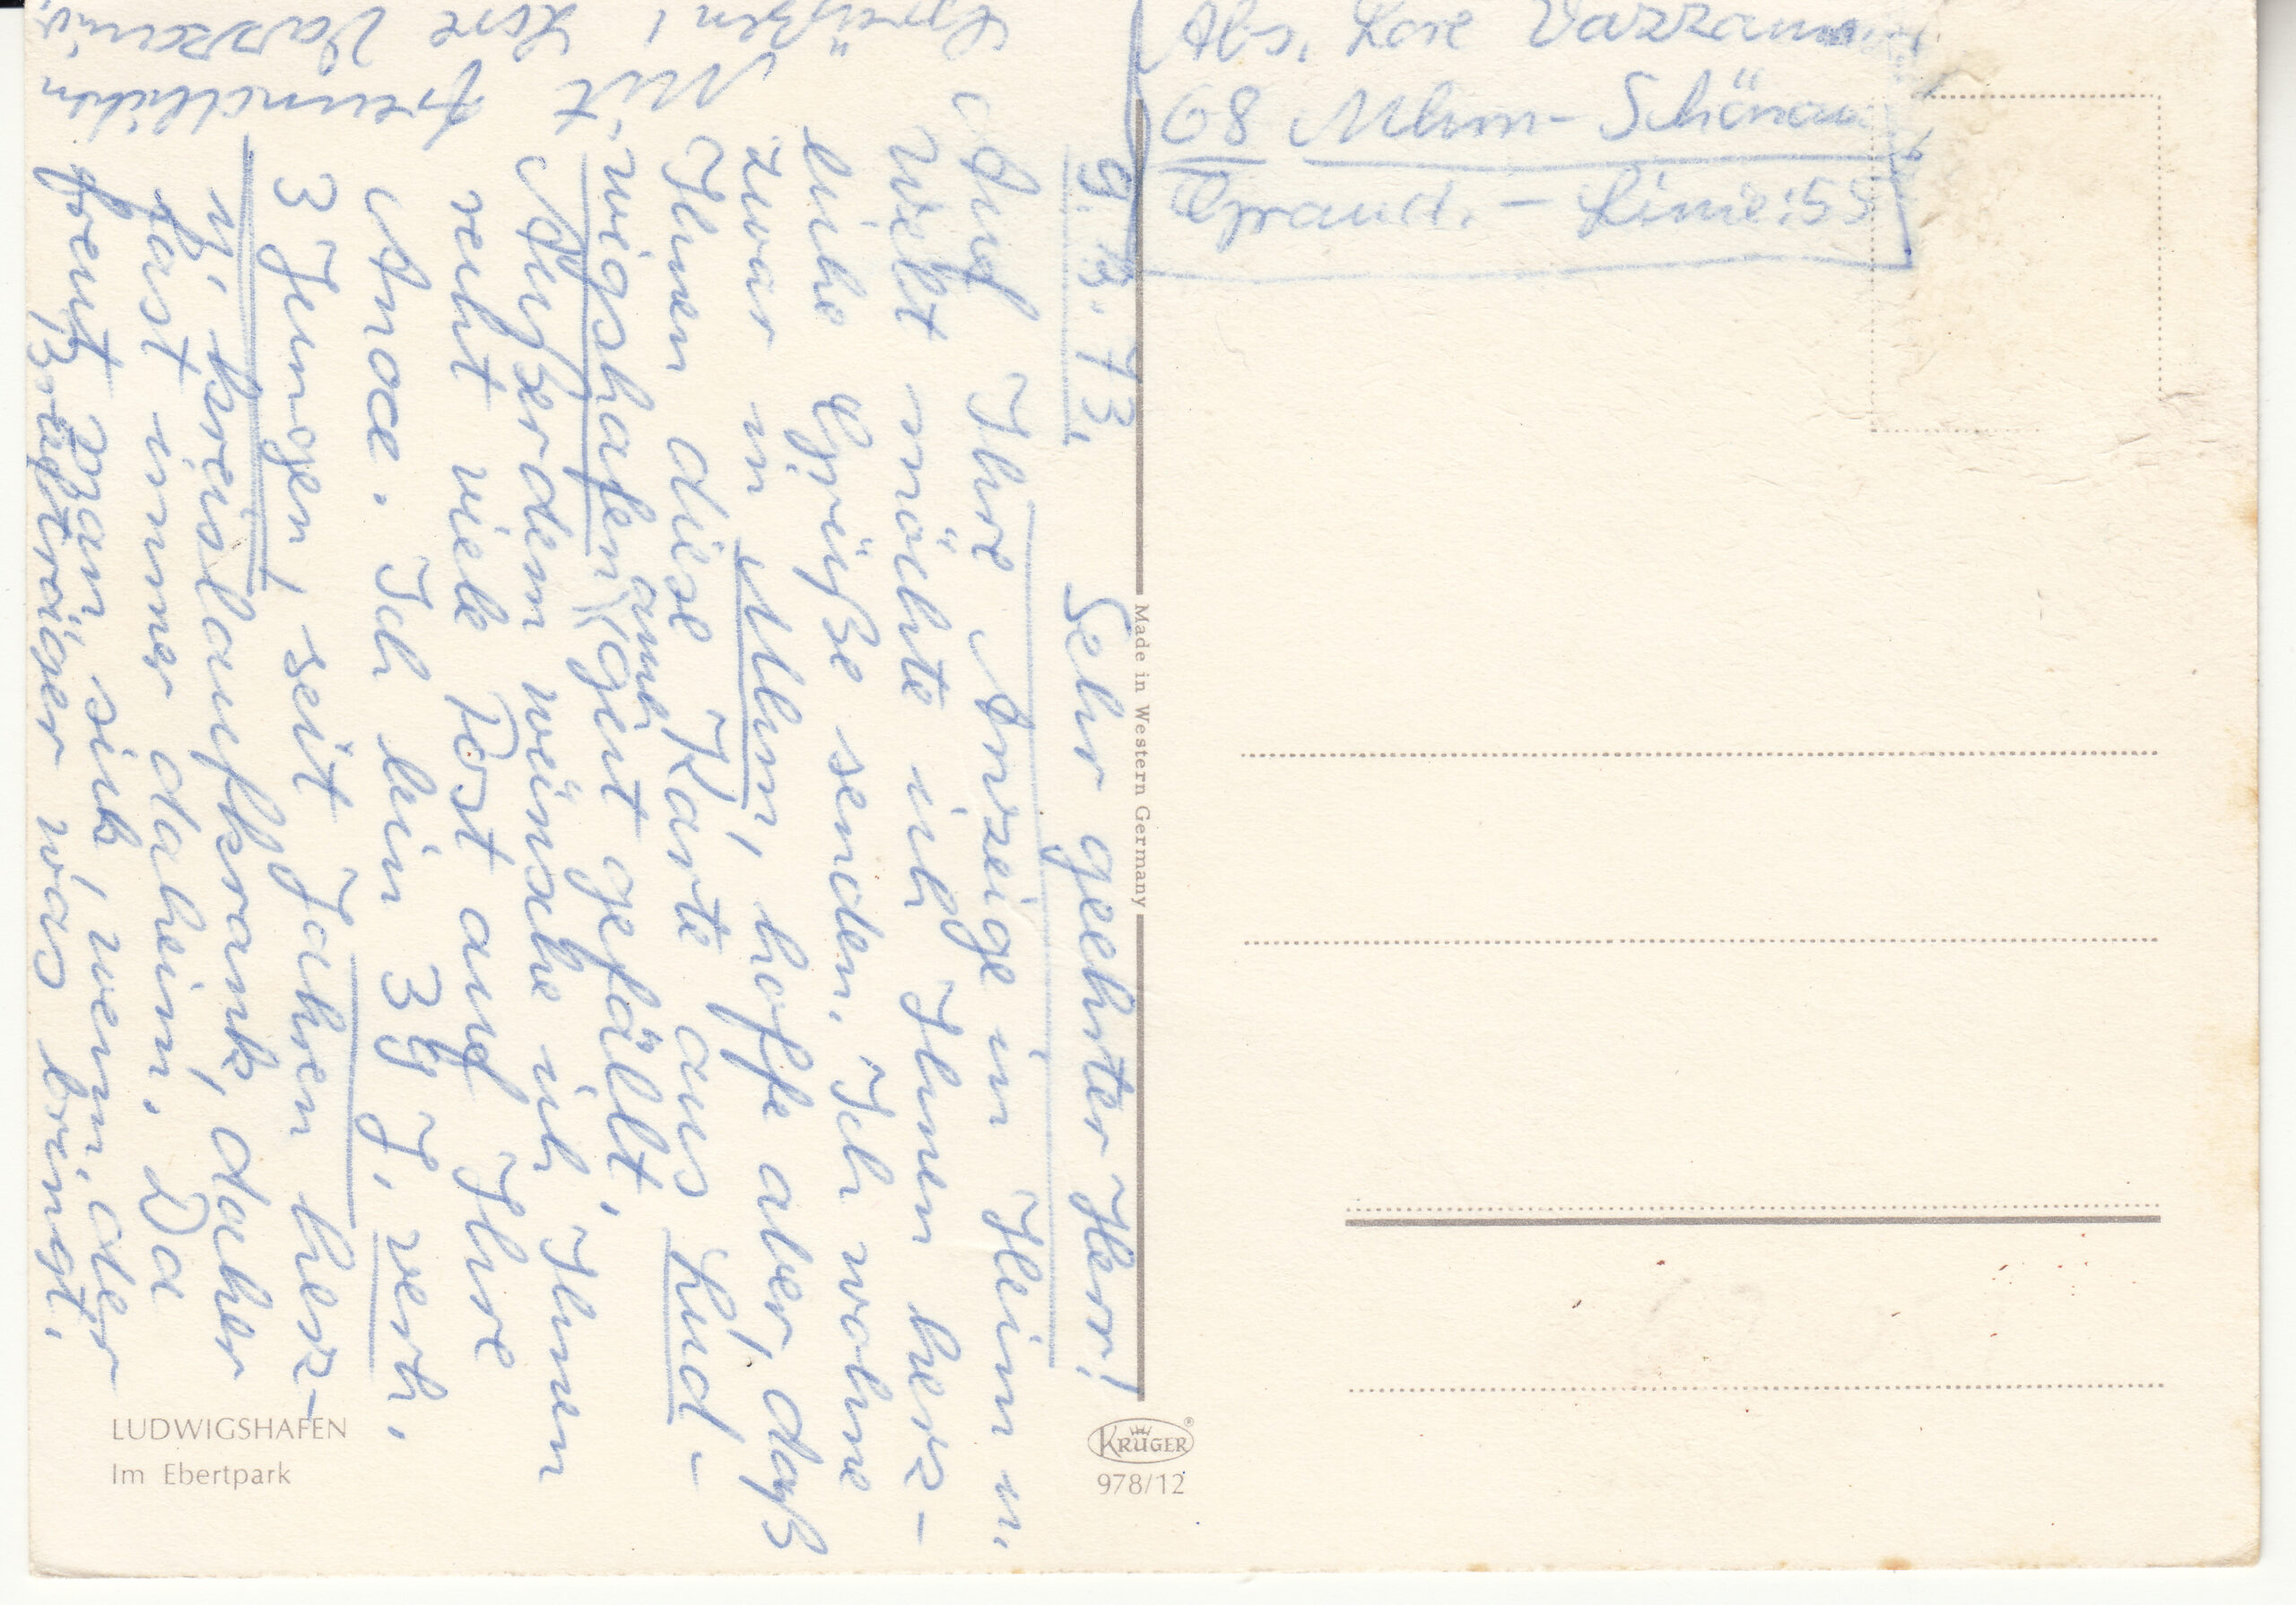 9. 3. 73.
Sehr geehrter Herr!
Auf Ihre Anzeige in Heim u.
Welt möchte ich Ihnen herz-
liche Grüße senden. Ich wohne
zwar in Mhm, hoffe aber, daß
Ihnen diese Karte aus Lud-
wigshafen auch gut gefällt.
Außerdem wünsche ich Ihnen
recht viele Post auf Ihre
Anoce. Ich bin 39 J, verh,
3 Jungen, seit Jahren herz-
u, kreislaufkrank, daher
fast immer daheim. Da
freut man sich, wenn der
Briefträger was bringt.
Mit freundlichen
Grüßen! Lore
Abs. Lore
68 Mhm- Schönau
Graud. - Linie:55
Made in Western Germany
LUDWIGSHAFEN
Im Ebertpark
KRÜGER
978/12